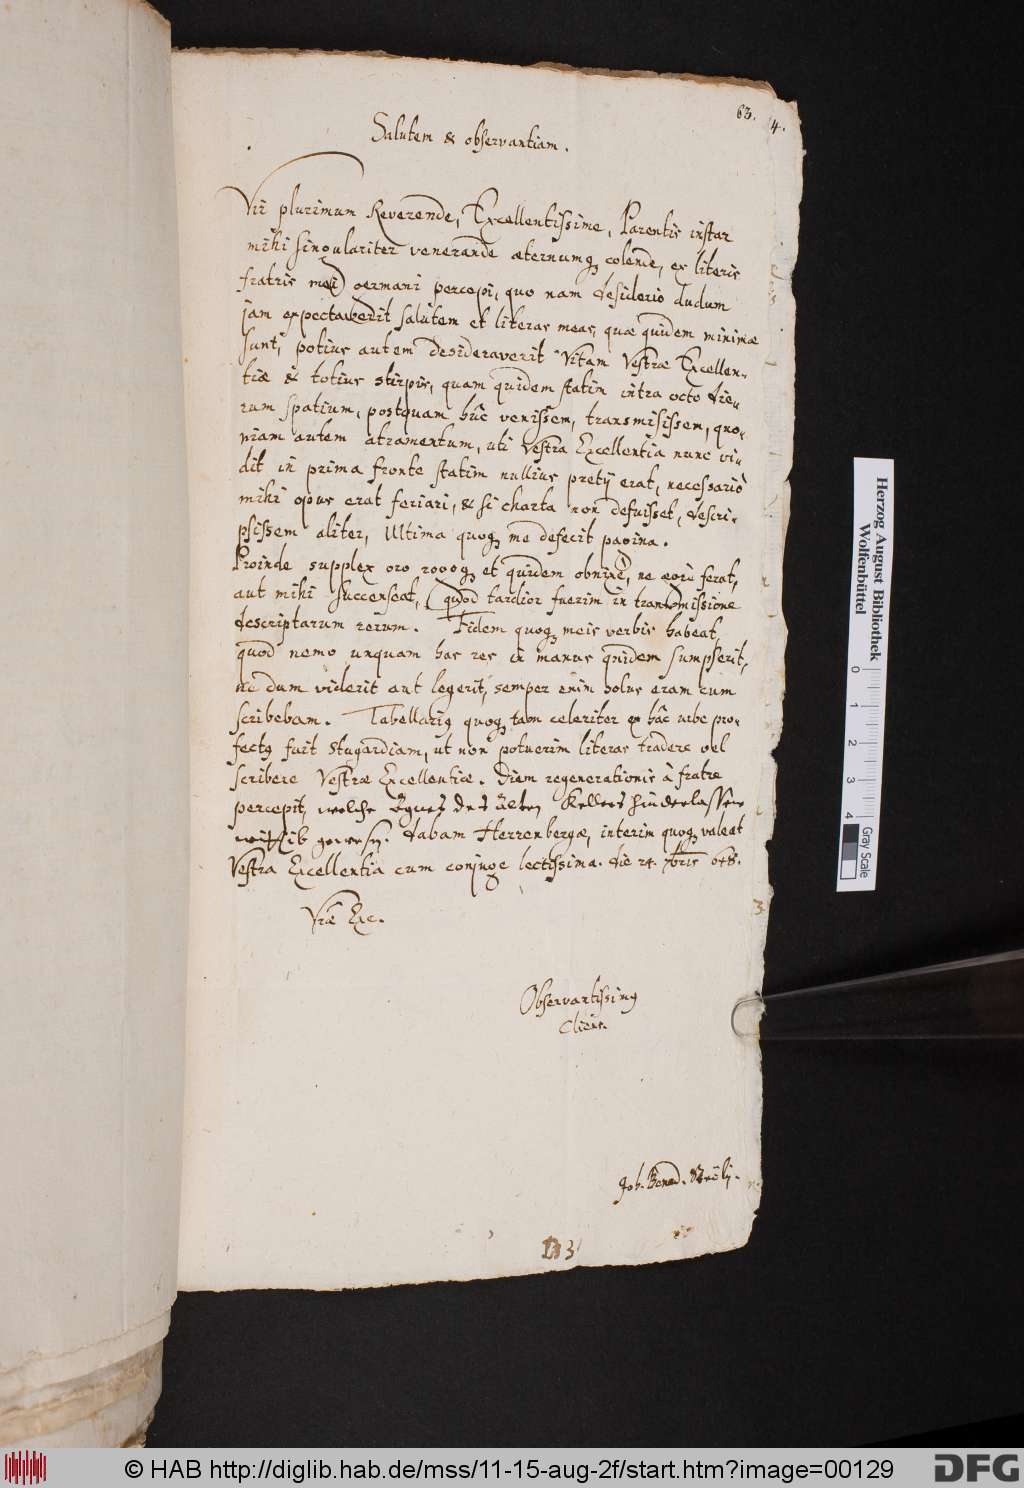 63. 4.
Salutem & observantiam.
Vir plurimum Reverende, Excellentissime, Parentis instar
mihi singulariter venerande æternumq colende, ex literis
fratris mei germani percepi, quo nam desiderio dudum
jam expectaverit salutem et literas meas, quæ quidem minimæ
sunt, potius autem desideraverit Vitam Vestræ Excellen-
tiæ & totius stirpis, quam quidem statim intra octo die-
rum spatium, postquam hûc venissem, transmisissem, quo-
niam autem atramentum, uti Vestra Excellentia nunc vi-
dit in prima fronte statim nullius pretij erat, necessariò
mihi opus erat feriari, & si charta non defuisset, descri-
psissem aliter, Ultima quoq me defecit pagina.
Proinde supplex oro rogoq et quidem obnixè, ne ferat,
aut mihi succenseat, quòd tardior fuerim in transmissione
descriptarum rerum. Fidem quoq meis verbis habeat,
quòd nemo unquam has res in manus quidem sumpserit,
ne dum viderit aut legerit, semper enim solus eram cum
scribebam. Tabellarig quoq tam celeriter ex hâc urbe pro-
fectg fuit Stugardiam, ut non potuerim literas tradere vel
scribere Vestræ Excellentiæ. Diem regenerationis à fratre
percepit, welche Agnes des alten Kellers hinderlassene
gewesen. dabam Herrenbergæ, interim quoq valeat
Vestra Excellentia cum conjuge lectissima. die 24. 7bris 648.
Vræ Exc.
Observantissimg
Cliens.
Joh. Bened.
3
Herzog August Bibliothek
Wolfenbüttel
0 1 2 3 4
Gray Scale
© HAB http://diglib.hab.de/mss/11-15-aug-2f/start.htm?image=00129
DFG